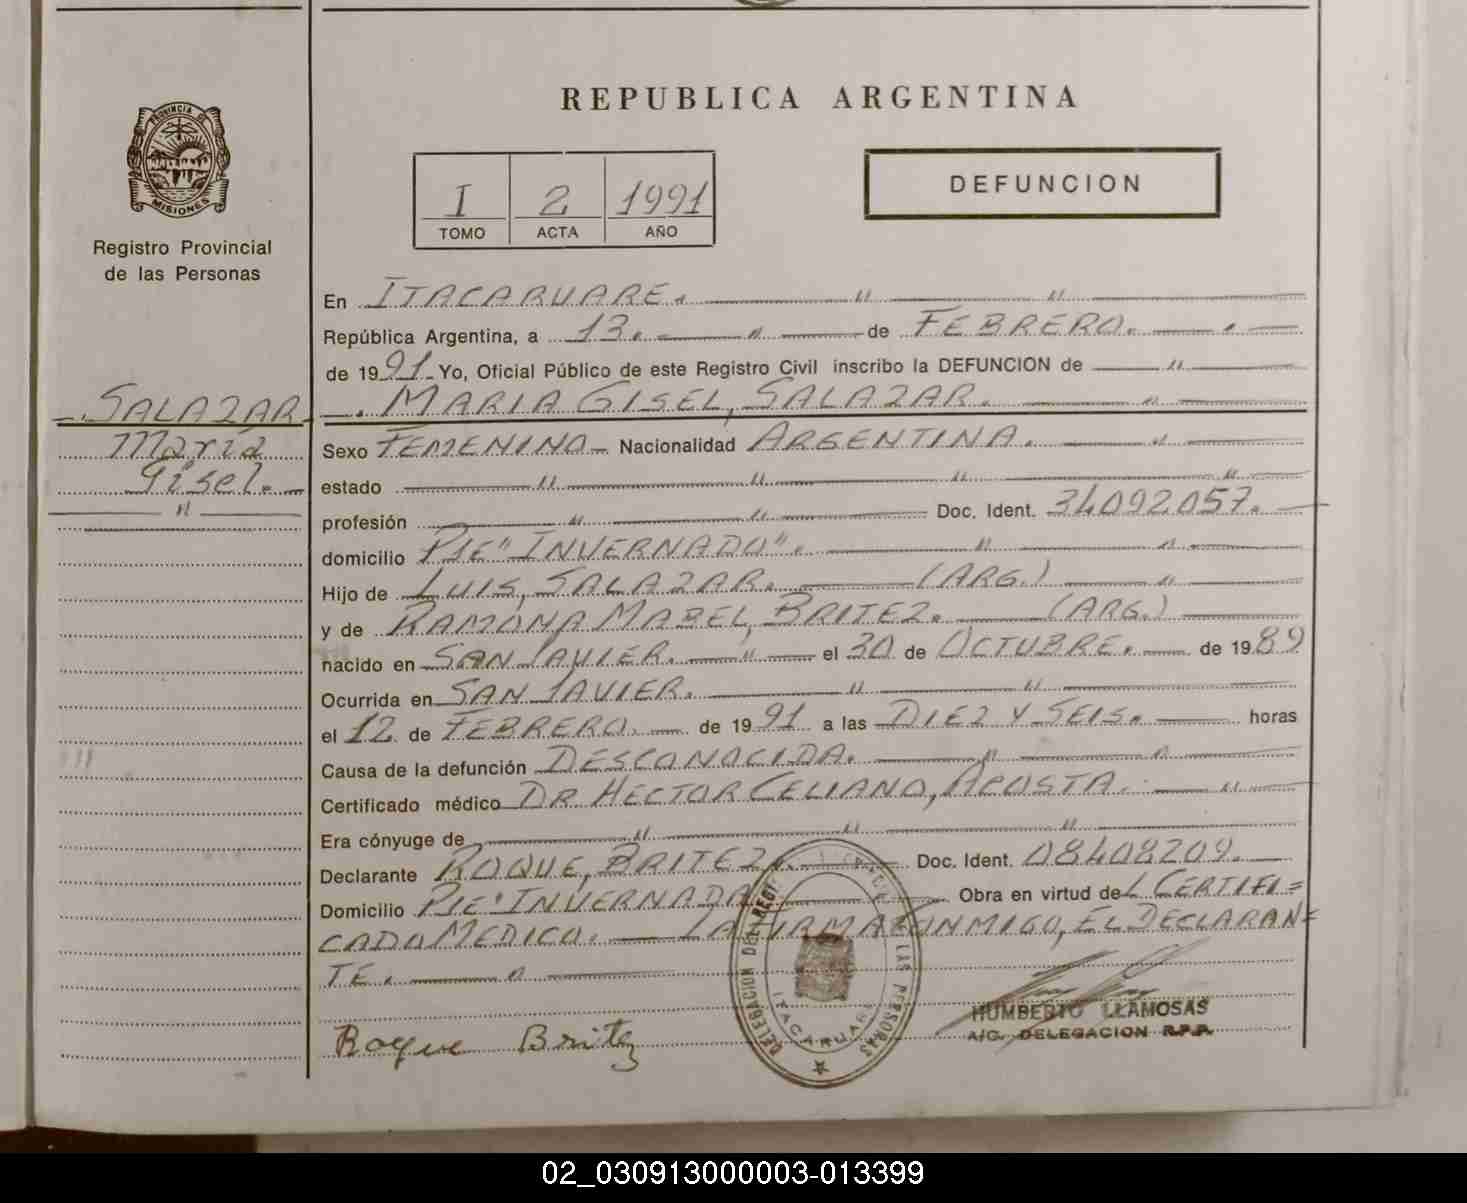 REPUBLICA ARGENTINA
PROVINCIA DE
MISIONES
Registro Provincial
de las Personas
I 2 1991
TOMO ACTA AÑO
DEFUNCION
En ITACARUARE. " "
República Argentina, a 13. " de FEBRERO.
de 1991 Yo, Oficial Público de este Registro Civil inscribo la DEFUNCION de "
MARIA GISEL, SALAZAR. "
SALAZAR
María
Gisel.
"
Sexo FEMENINO Nacionalidad ARGENTINA. "
estado " " " "
profesión " " Doc. Ident. 34092057.
domicilio PJE "INVERNADO". " "
Hijo de LUIS, SALAZAR. (ARG.) "
y de RAMONA MABEL, BRITEZ. (ARG.)
nacido en SAN JAVIER. " el 30 de OCTUBRE. de 1989
Ocurrida en SAN JAVIER. " "
el 12 de FEBRERO. de 1991 a las DIEZ Y SEIS. horas
Causa de la defunción DESCONOCIDA. " "
Certificado médico DR HECTOR CELIANO, ACOSTA. "
Era cónyuge de " " "
Declarante ROQUE, BRITEZ. Doc. Ident. 08408209.
Domicilio PJE "INVERNADA Obra en virtud de L CERTIFI=
CADO MEDICO. LA FIRMA CONMIGO, EL DECLARAN=
TE. "
Roque Britez
DELEGACION DEL REGI DE LAS PERSONAS
ITACARUARE
HUMBERTO LLAMOSAS
A/C. DELEGACION R.P.P.
02_030913000003-013399